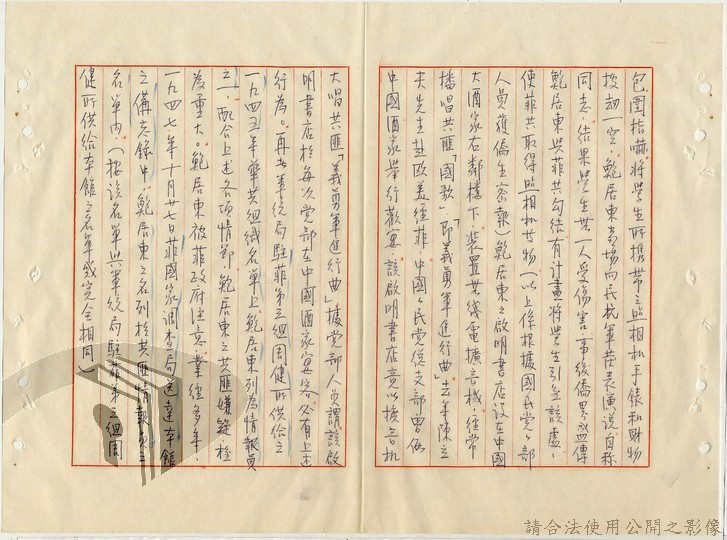 包圍指嚇將學生所攜帶之照相机手錶和財物
按劫一空，鮑居東当場向民抗軍發表演說，自称
同志，結果學生無一人受傷害，事後僑界盛傳
鮑居東与菲共勾結有計畫將學生引至該處，
使菲共取得照相机等物（以上係根據國民党党部
人員獲僑生密報）鮑居東之啟明書店設在中國
大酒家右鄰樓下，裝置無綫電擴音機，經常
播唱共匪「國歌」即「義勇軍進行曲」去年陳立
夫先生赴歐美經菲，中國国民党總支部曾假
中國酒家舉行歡宴，該啟明書店竟以擴音机
大唱共匪「義勇軍進行曲」據党部人員謂該啟
明書店於每次党部在中國酒家宴客必有上述
行為。再者軍統局駐菲第三組周健所供給之
一九四五年華共組織名單上，鮑居東列為情報員
之一，配合上述各項情節，鮑居東之共匪嫌疑，極
為重大。鮑居東被菲政府注意業經多年，
一九四七年十月廿七日菲國家調查局送達本館
之備忘錄中，鮑居東之名列於共匪情報員之
名單內，（按該名單與軍統局駐菲第三組周
健所供給本館之名單幾完全相同）
請合法使用公開之影像